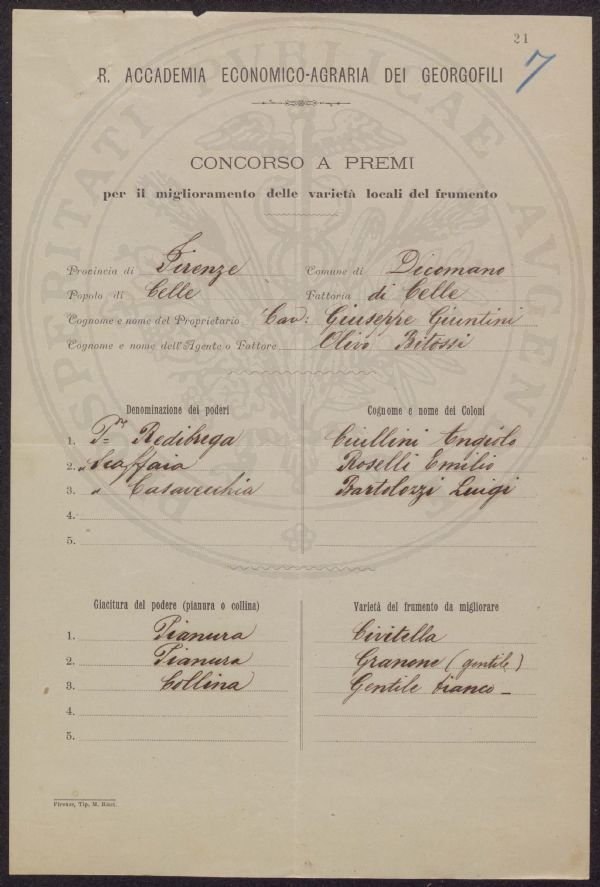 21
7
R. ACCADEMIA ECONOMICO-AGRARIA DEI GEORGOFILI
CONCORSO A PREMI
per il miglioramento delle varietà locali del frumento
Provincia di Firenze Comune di Dicomano
Popolo di Celle Fattoria di Celle
Cognome e nome del Proprietario Cav: Giuseppe Giuntini
Cognome e nome dell'Agente o Fattore Olivo Bitossi
Denominazione dei poderi Cognome e nome dei Coloni
1. Pre Redibrega Ciullini Angiolo
2. " Scaffaia Roselli Emilio
3. " Casavecchia Bartolozzi Luigi
4.
5.
Giacitura del podere (pianura o collina) Varietà del frumento da migliorare
1. Pianura Civitella
2. Pianura Granone (gentile)
3. Collina Gentile bianco -
4.
5.
Firenze, Tip. M. Ricci.
PROSPERITATI PUBLICAE AUGENDAE